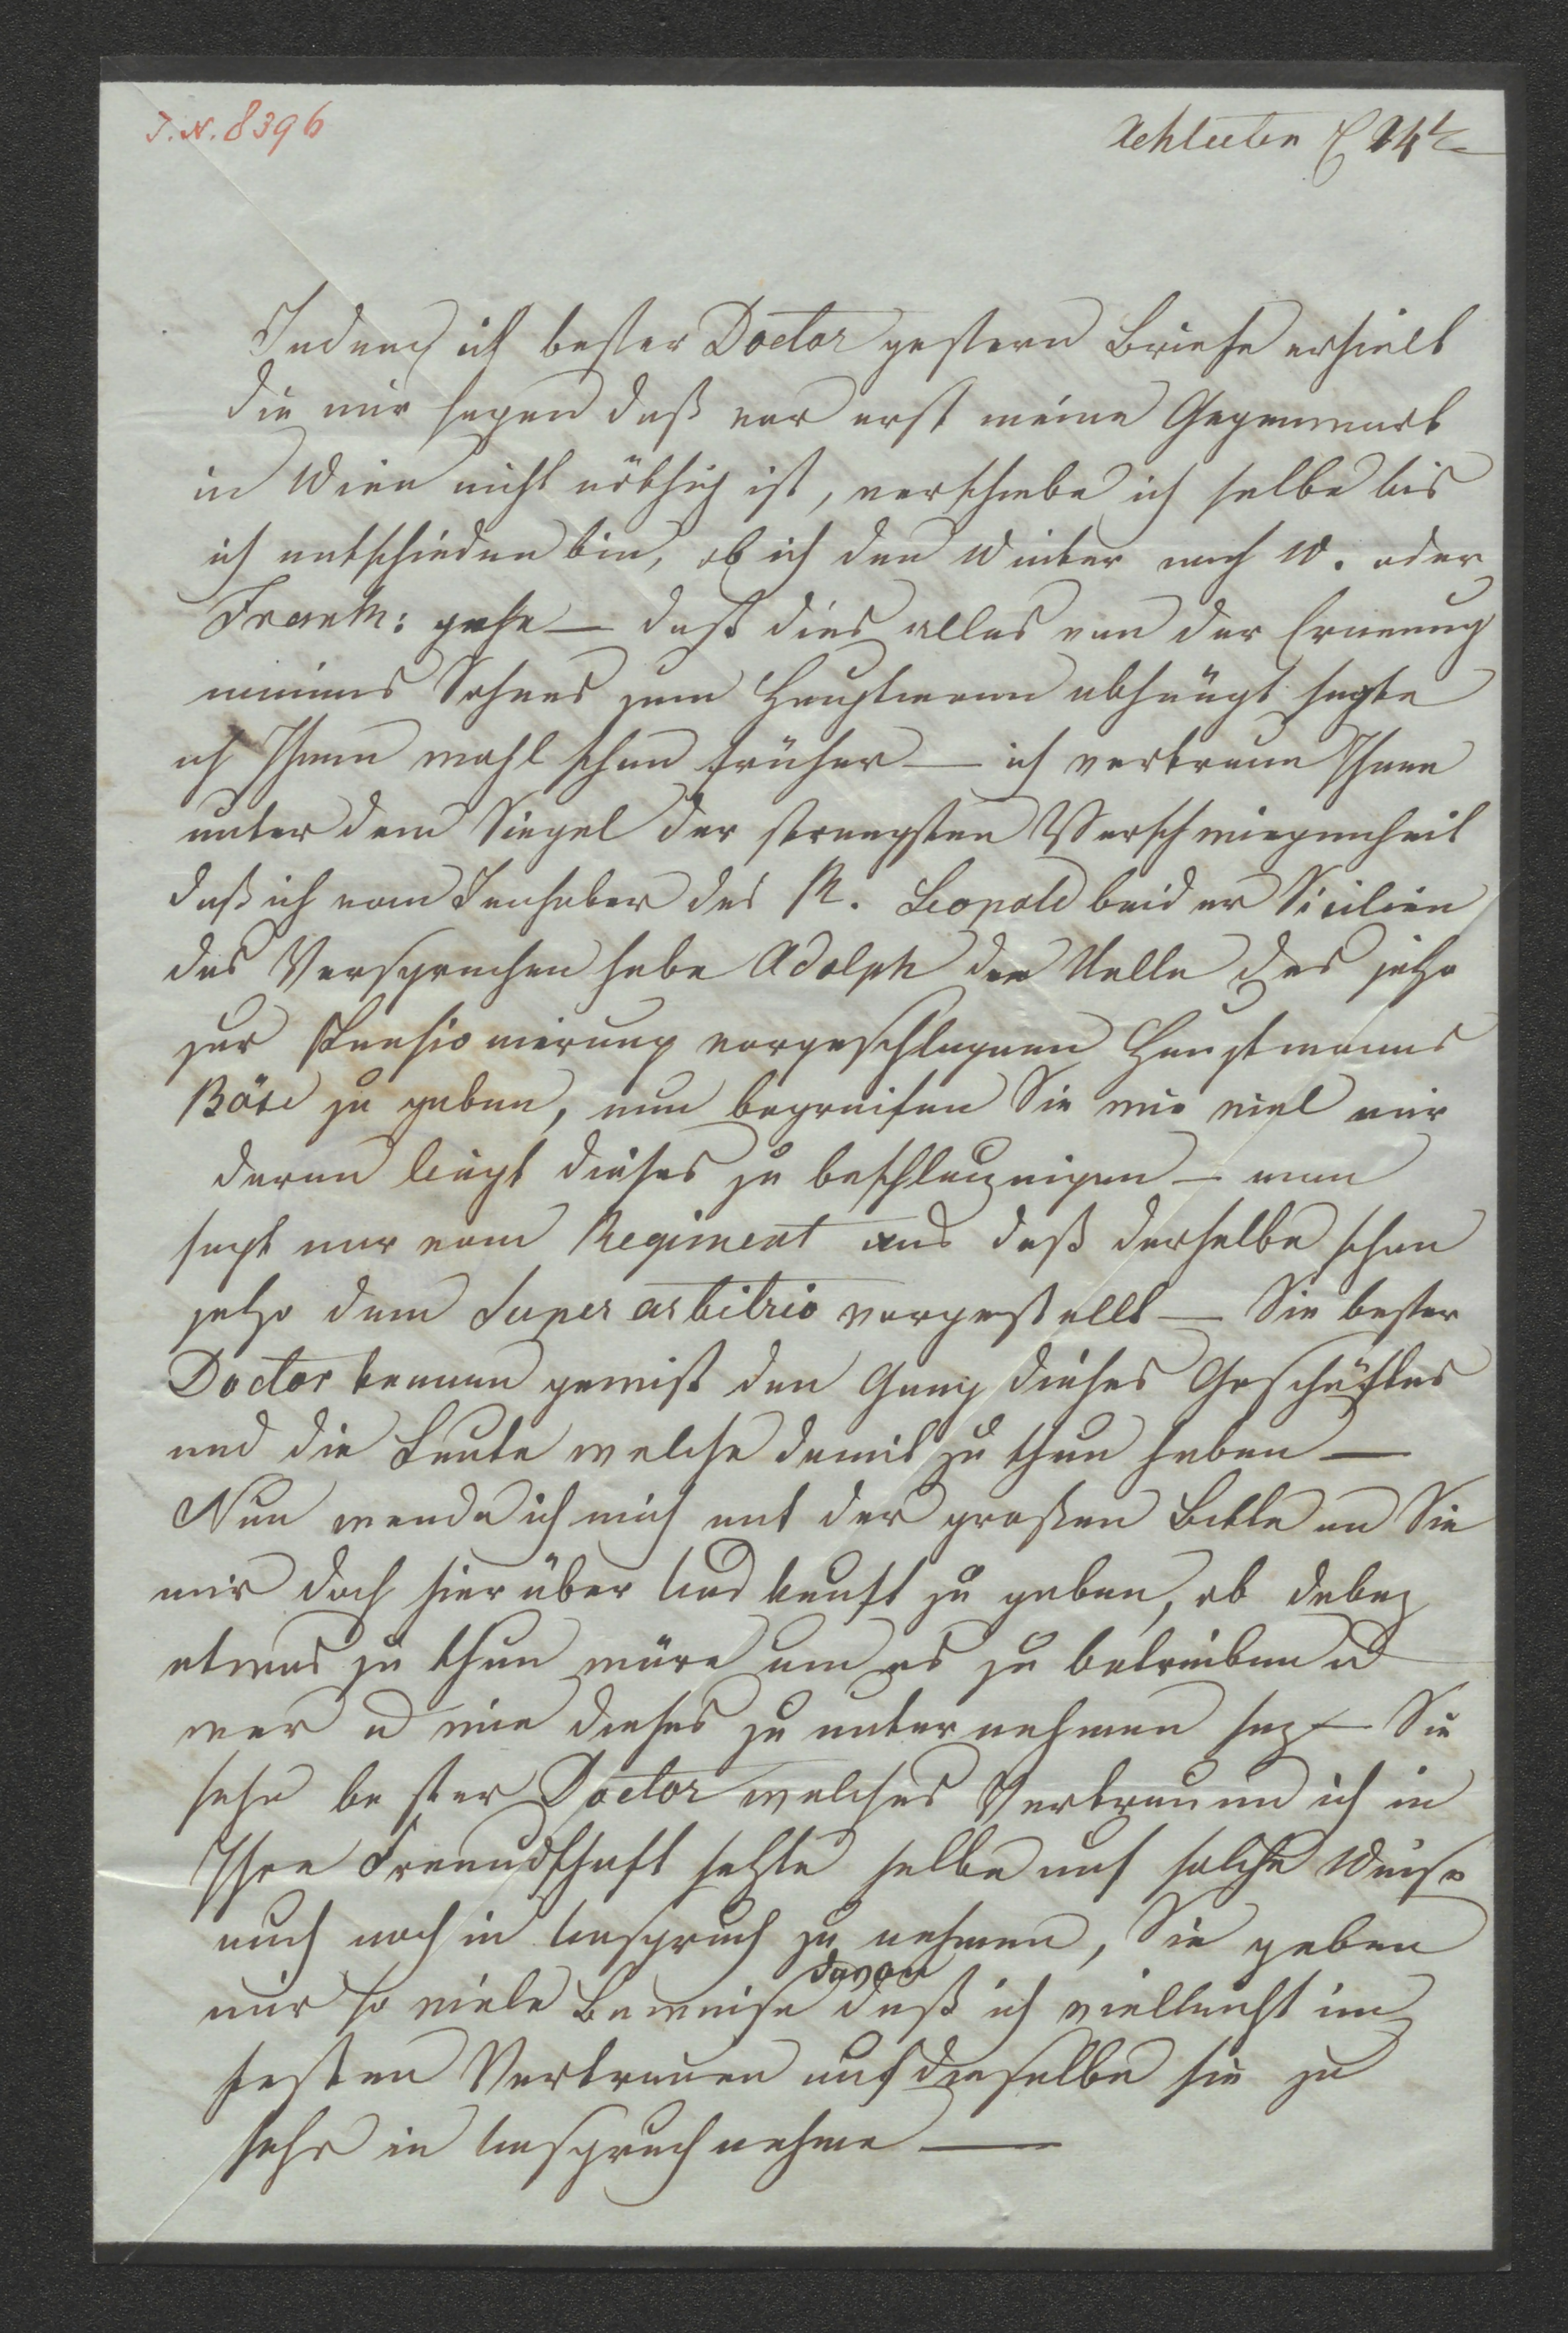 J. N. 8396
Achleiten E 14t
Indem ich bester Doctor gestern Briefe erhielt
die mir sagen daß vor erst meine Gegenwart
in Wien nicht nöthig ist, verschiebe ich selbe bis
ich entschieden bin, ob ich den Winter nach W. oder
Frank: gehe — daß dies alles von der Ernenung
meines Sohnes zum Hauptmann abhängt sagte
ich Ihnen wohl schon früher — ich vertraue Ihnen
unter dem Siegel der strengsten Verschwiegenheit
daß ich vom Innhaber des R. Leopold beider Sicilien
das Versprechen habe Adolph die Stelle des jetzo
zur Pensionierung vorgeschlagenen Hauptmanns
Böse zu geben, nun begreifen Sie wie viel mir
daran liegt dieses zu beschleunigen — man
sagt mir vom Regiment aus daß derselbe schon
jetzo dem Super arbitrio vorgestellt — Sie bester
Doctor kennen gewiß den Gang dieses Geschäftes
und die Leute welche damit zu thun haben —
Nun wende ich mich mit der großen Bitte an Sie
mir doch hierüber Auskunft zu geben, ob dabey
etwas zu thun wäre um es zu betreiben u
wer u wie dieses zu unternehmen sey — Sie
sehn bester Doctor welches Vertrauen ich in
Ihre Freundschaft setzte selbe auf solche Weise
auch noch in Anspruch zu nehmen, Sie geben
mir so viele Beweise davon daß ich vielleicht im
festen Vertrauen auf dieselbe sie zu
sehr in Anspruch nehme —